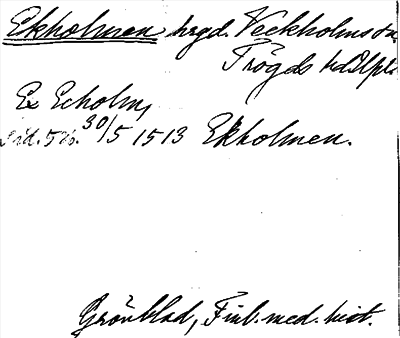 Ekholmen hrgd. Veckholms sn
Trögds hd Upl.
Ex Echolm,
30/5 1513 Ekholmen.
Grönblad, Finl. med. hist.